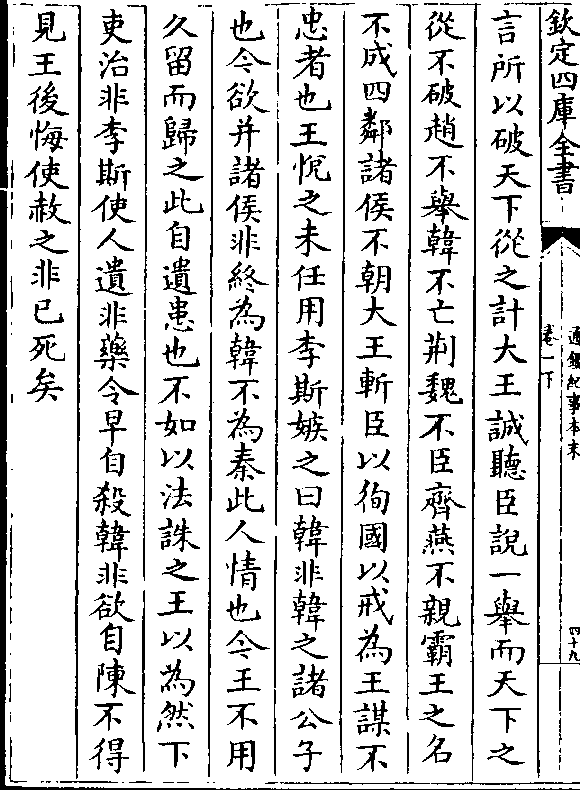 欽定四庫全書
通鑑紀事本末
卷一下
四十九
言所以破天下從之計大王誠聽臣說一舉而天下之
從不破趙不舉韓不亡荆魏不臣齊燕不親霸王之名
不成四鄰諸侯不朝大王斬臣以徇國以戒為王謀不
忠者也王悅之未任用李斯嫉之曰韓非韓之諸公子
也今欲并諸侯非終為韓不為秦此人情也今王不用
久留而歸之此自遺患也不如以法誅之王以為然下
吏治非李斯使人遺非藥令早自殺韓非欲自陳不得
見王後悔使赦之非已死矣